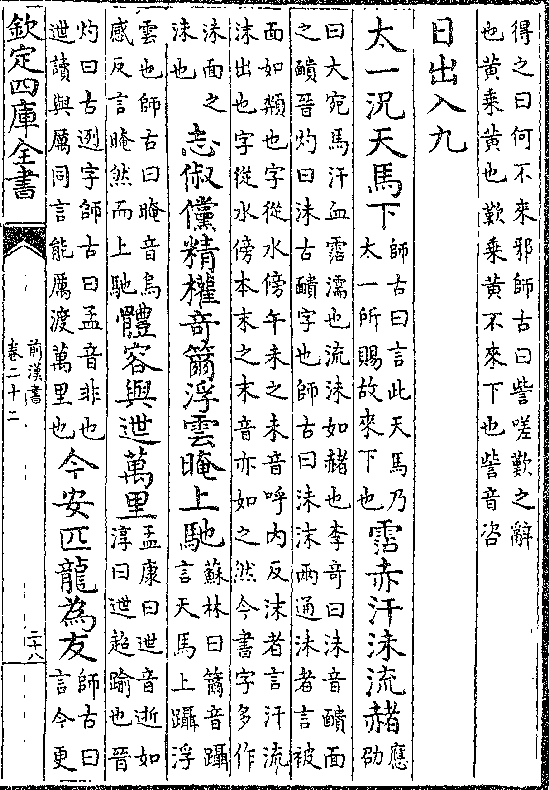 得之曰何不來邪師古曰訾嗟歎之辭
也黄乗黄也歎乗黄不來下也訾音咨
日出入九
太一況天馬下
師古曰言此天馬乃
太一所賜故來下也
霑赤汗沬流赭
應
劭
曰大宛馬汗血霑濡也流沬如赭也李竒曰沬音靧面
之靧晉灼曰沬古靧字也師古曰沬沫兩通沬者言被
面如頮也字從水傍午未之未音呼内反沫者言汗流
沫出也字從水傍本末之末音亦如之然今書字多作
沬面之
沬也
志俶儻精權竒籋浮雲晻上馳
蘇林曰籋音躡
言天馬上躡浮
雲也師古曰晻音烏
感反言晻然而上馳
體容與迣萬里
孟康曰迣音逝如
淳曰迣超踰也晉
灼曰古迾字師古曰孟音非也
迣讀與厲同言能厲渡萬里也
今安匹龍為友
師古曰
言今更
欽定四庫全書
前漢書
卷二十二
二十八